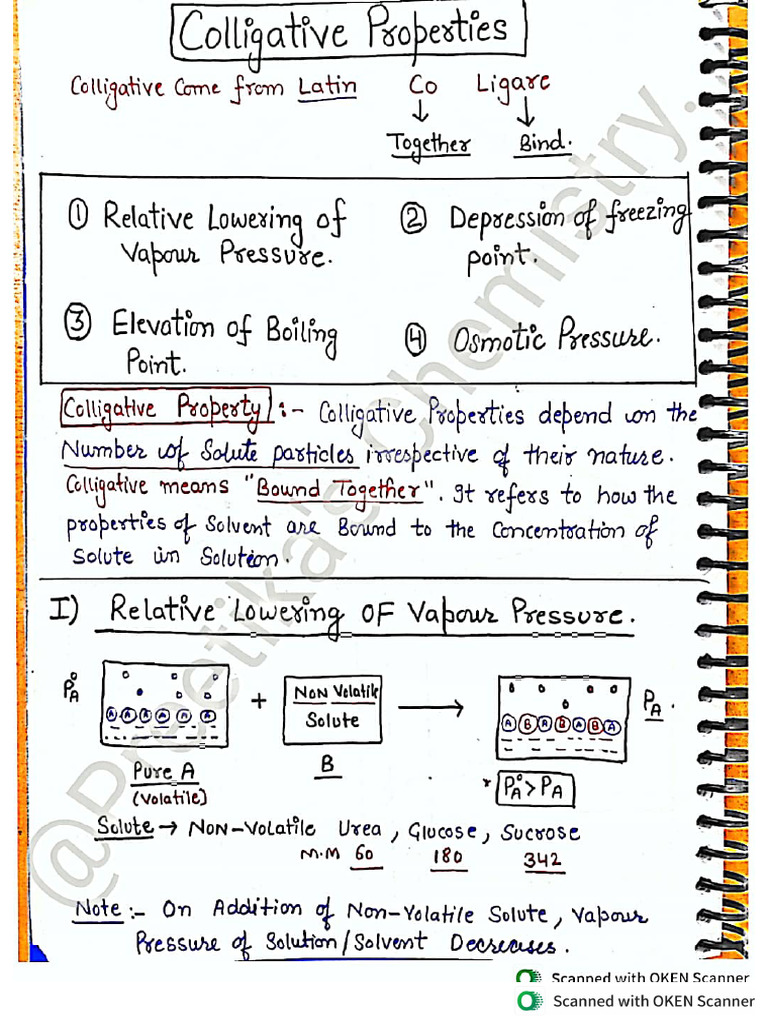 Colligative Properties
Colligative Come from Latin Co Ligare
Together Bind.
① Relative Lowering of
Vapour Pressure.
② Depression of freezing
point.
③ Elevation of Boiling
Point.
④ Osmotic Pressure.
Colligative Property :- Colligative Properties depend on the
Number of Solute particles irrespective of their nature.
Colligative means "Bound Together". It refers to how the
properties of Solvent are Bound to the Concentration of
Solute in Solution.
I) Relative Lowering OF Vapour Pressure.
P°A
A A A A A A
+
Non Volatile
Solute
A B A B A B A
PA.
Pure A
(Volatile)
B
* P°A > PA
Solute → Non-Volatile Urea, Glucose, Sucrose
M.M 60 180 342
Note :- On Addition of Non-Volatile Solute, Vapour
Pressure of Solution/Solvent Decreases.
@Preetika's Chemistry.
Scanned with OKEN Scanner
Scanned with OKEN Scanner